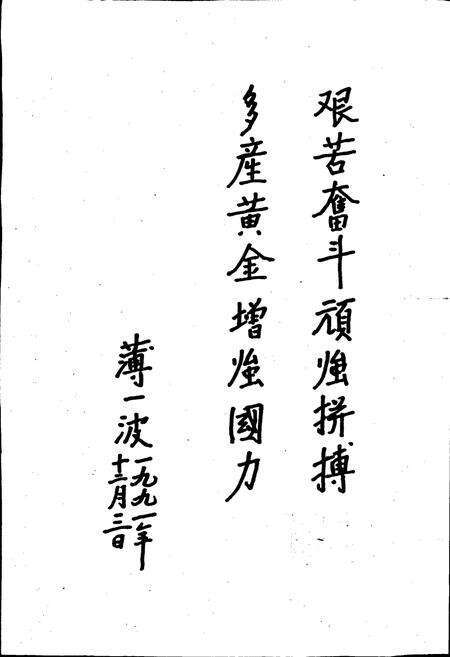 艰苦奮斗頑強拼搏
多産黃金增強國力
薄一波
一九九一年
十二月三日